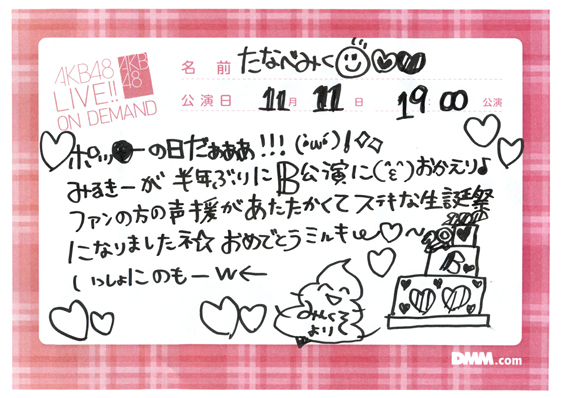 AKB48
LIVE!!
ON DEMAND
AKB
48
名 前 たなべみく
公演日 11月 11日 19:00 公演
の日だぁぁぁ!!! (・ω・)!
みるきーが 半年ぶりにB公演に おかえり♪
ファンの方の声援があたたかくてステキな生誕祭
になりましたネ☆ おめでとうミルキー♡〜
いっしょにのもーw←
みくそ
より
20
B
DMM.com